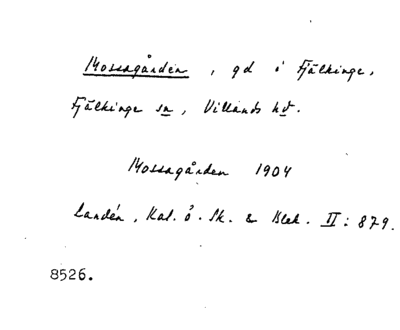 Mossagården, gd i Fjälkinge,
Fjälkinge sn, Villands hd.
Mossagården 1904
Landén, Kal. ö. Sk. & Blek. II: 879.
8526.